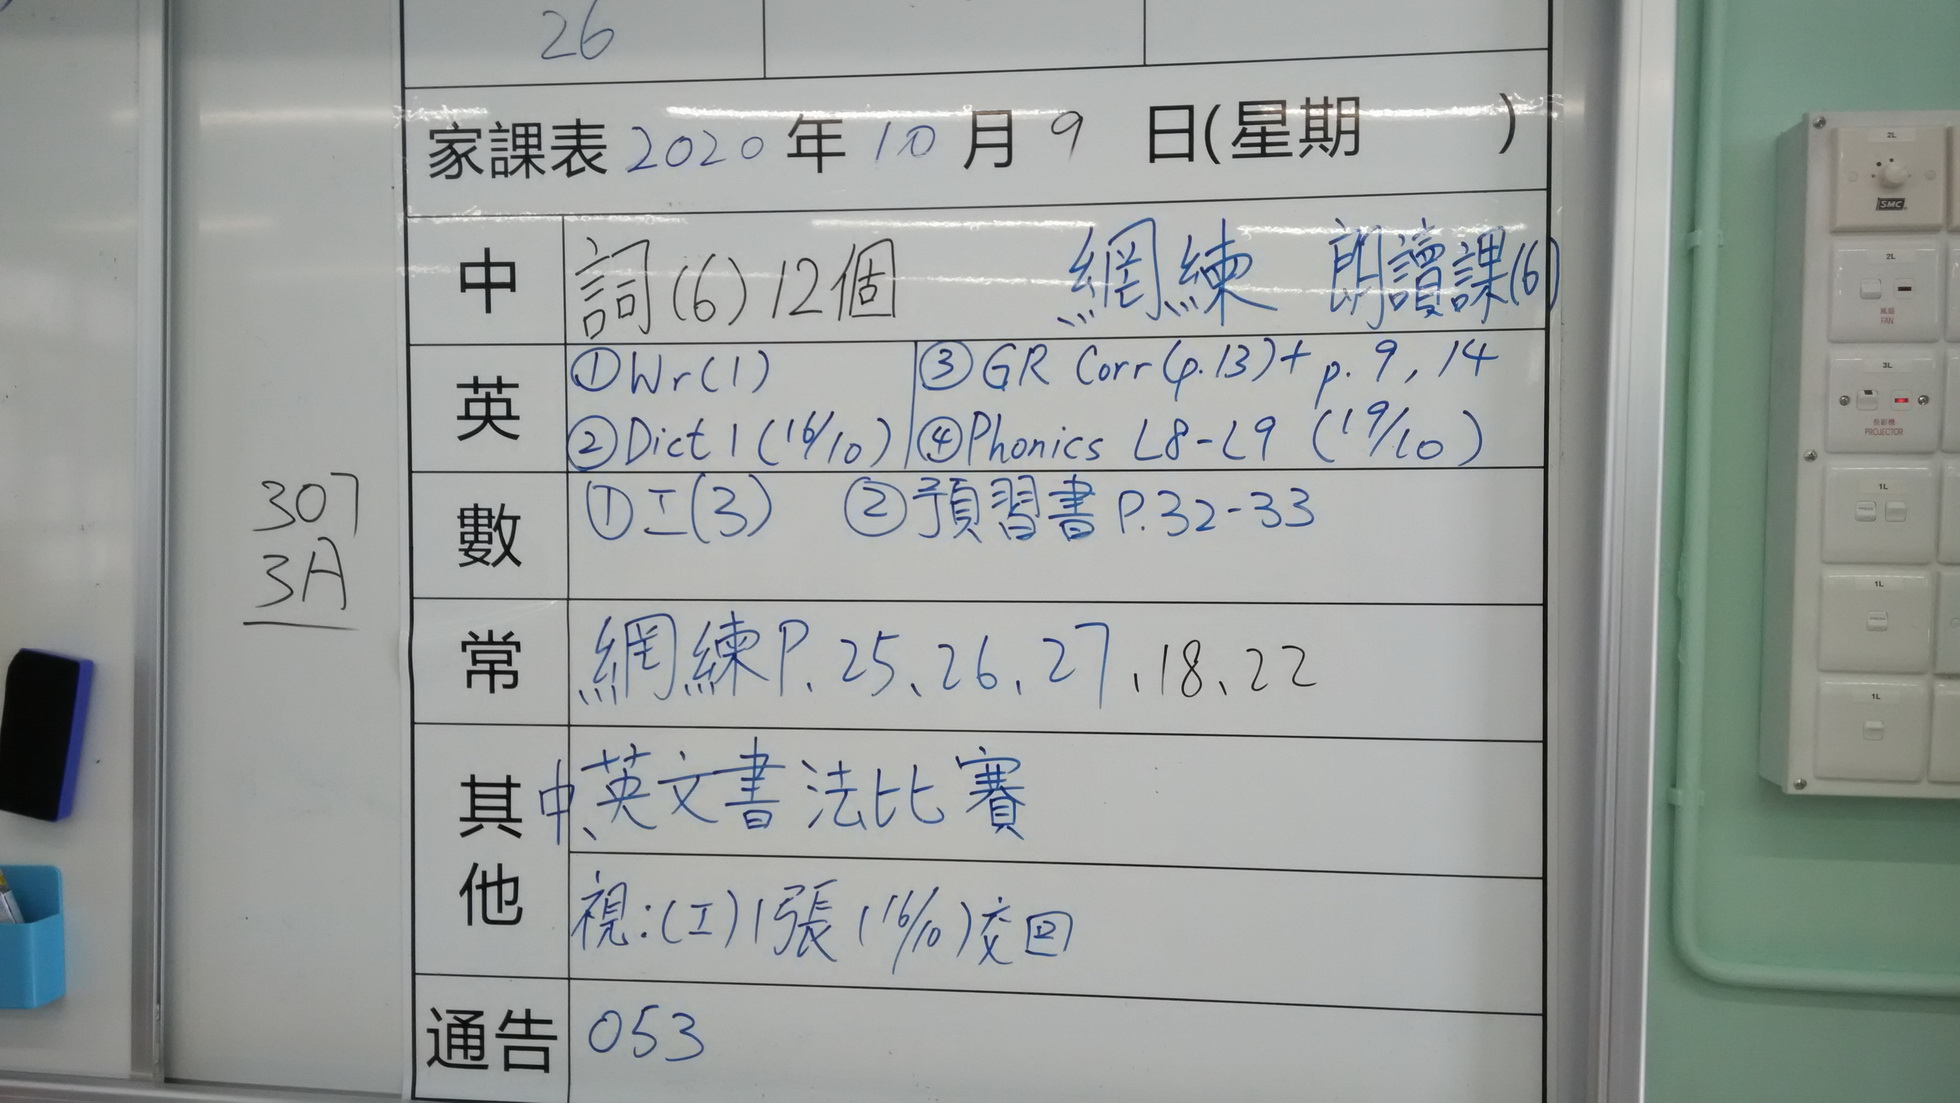 26
家課表 2020 年 10 月 9 日(星期 )
中 詞(6)12個 網練 朗讀課(6)
英 ①Wr(1) ③GR Corr(p.13)+ p. 9, 14
②Dict 1 (16/10) ④Phonics L8-L9 (19/10)
數 ①工(3) ②預習書 P.32-33
307
3A
常 網練P.25、26、27、18、22
其他 中、英文書法比賽
視:(工)1張(16/10)交回
通告 053
2L
SMC
2L
風扇
FAN
3L
投影機
PROJECTOR
1L
1L
1L